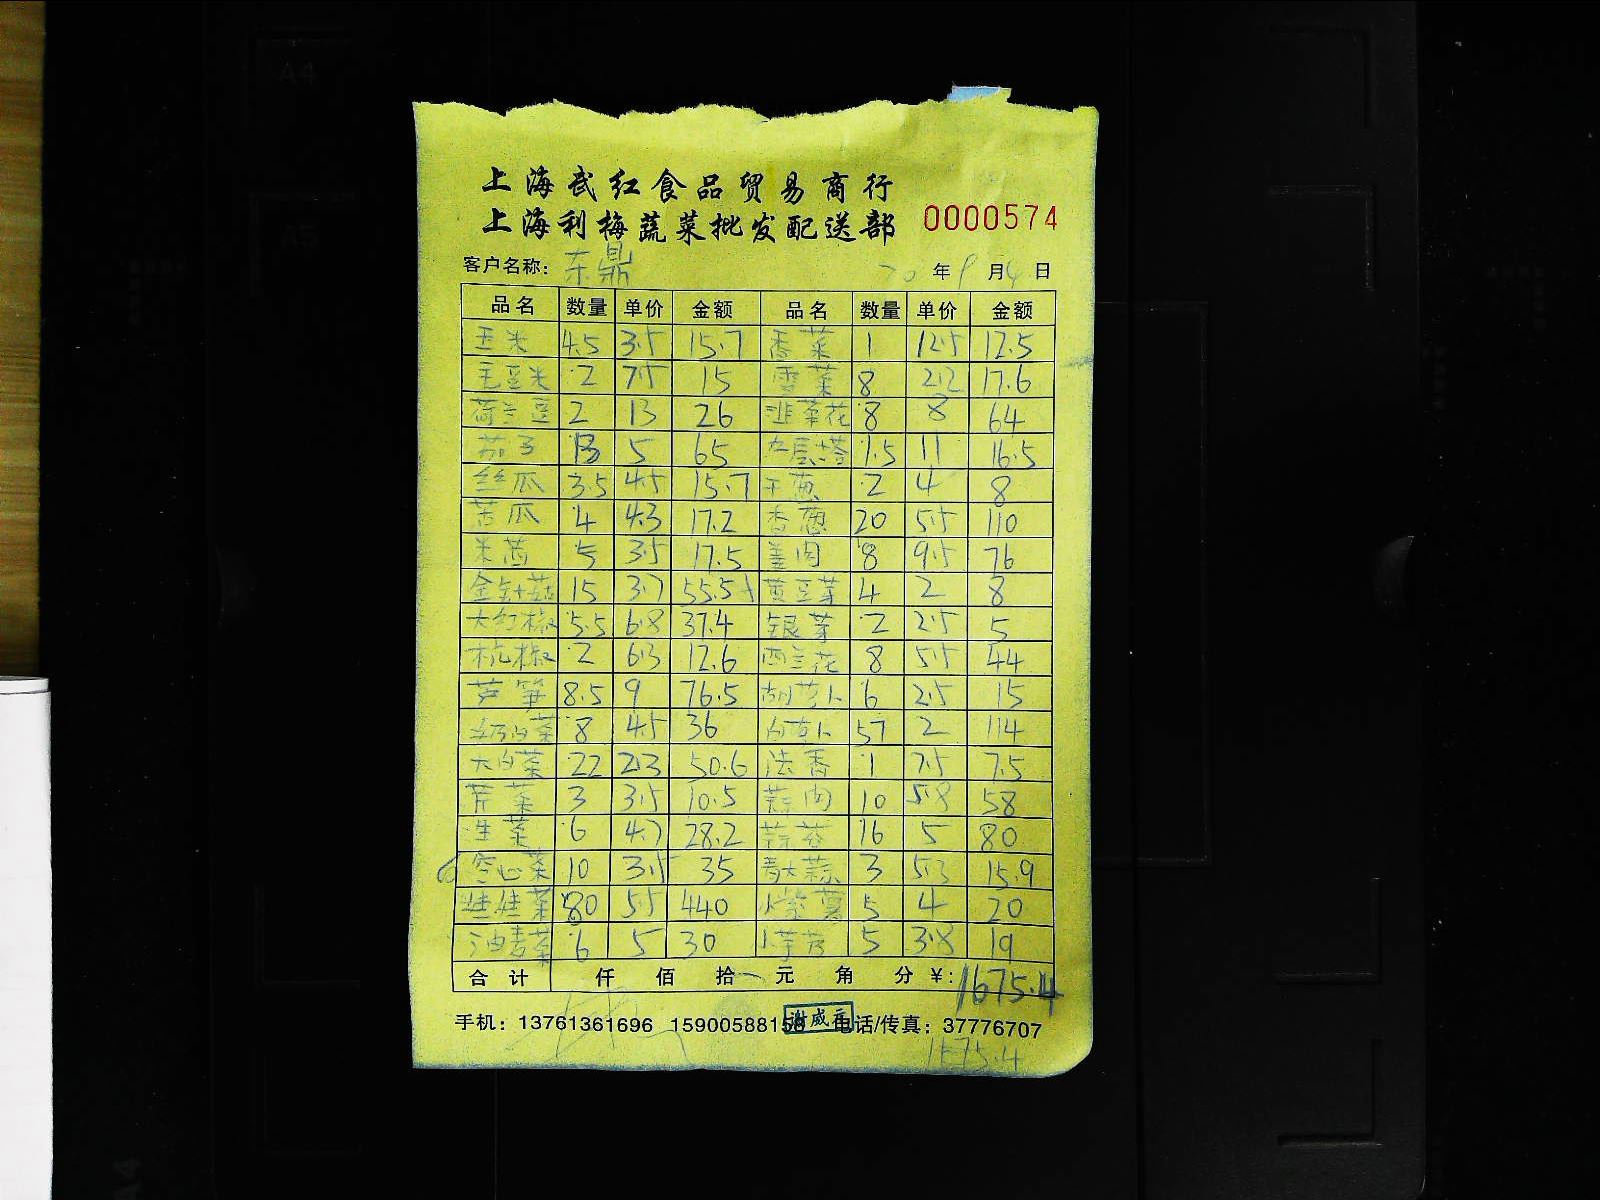 上海武红食品贸易商行
上海利梅蔬菜批发配送部 0000574
客户名称: 东鼎 20 年 9 月 4 日
品名 数量 单价 金额 品名 数量 单价 金额
玉米 4.5 3.5 15.7 香菜 1 12.5 12.5
毛豆米 2 7.5 15 雪菜 8 2.2 17.6
荷兰豆 2 13 26 韭菜花 8 8 64
茄子 13 5 65 九层塔 1.5 11 16.5
丝瓜 3.5 4.5 15.7 干葱 2 4 8
苦瓜 4 4.3 17.2 香葱 20 5.5 110
米茄 5 3.5 17.5 姜肉 8 9.5 76
金针菇 15 3.7 55.5 黄豆芽 4 2 8
大红椒 5.5 6.8 37.4 银芽 2 2.5 5
杭椒 2 6.3 12.6 西兰花 8 5.5 44
芦笋 8.5 9 76.5 胡萝卜 6 2.5 15
奶白菜 8 4.5 36 白萝卜 57 2 114
大白菜 22 2.3 50.6 法香 1 7.5 7.5
芹菜 3 3.5 10.5 蒜肉 10 5.8 58
生菜 6 4.7 28.2 蒜苔 16 5 80
空心菜 10 3.5 35 青大蒜 3 5.3 15.9
娃娃菜 80 5.5 440 小紫薯 5 4 20
油麦菜 6 5 30 小芋艿 5 3.8 19
合计 仟 佰 拾 元 角 分 ¥: 1675.4
手机: 13761361696 15900588158 电话/传真: 37776707
1675.4